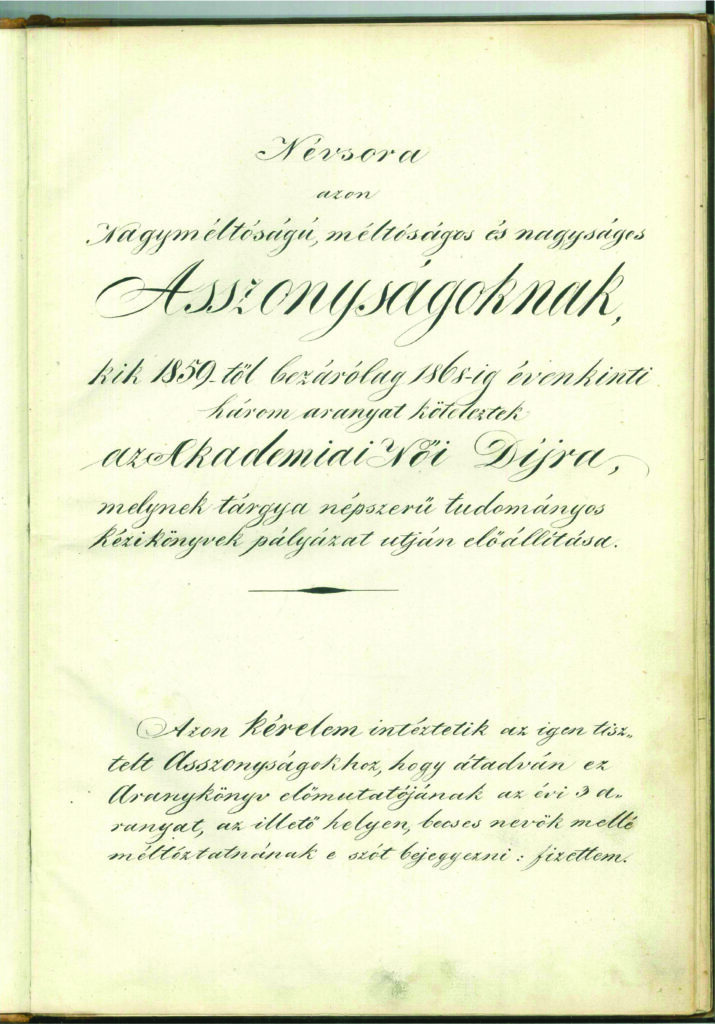 Névsora
azon
Nagyméltóságú, méltóságos és nagyságos
Asszonyságoknak,
kik 1859-től bezárólag 1868-ig évenkinti
három aranyat köteleztek
az Akademiai Női Díjra,
melynek tárgya népszerű tudományos
kézikönyvek pályázat utján előállítása.
Azon kérelem intéztetik az igen tisz„
telt Asszonyságokhoz, hogy átadván ez
Aranykönyv előmutatójának az évi 3 a„
ranyat, az illető helyen, becses nevök mellé
méltóztatnának e szót bejegyezni: fizettem.